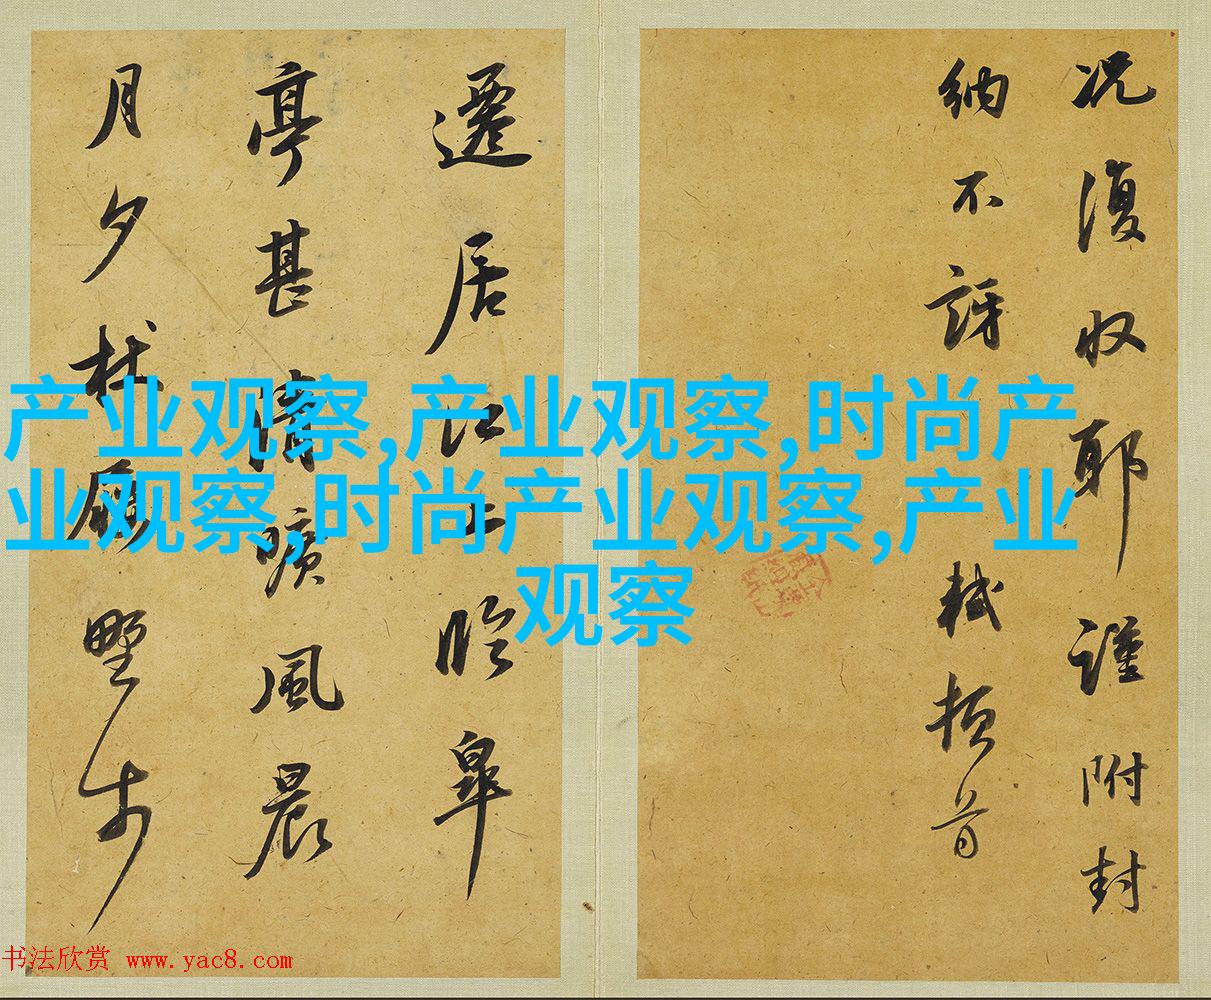 况復收耶謹附封
納不訝軾頓首
遷居江上臨皐
亭甚清曠風晨
月夕杖屨野步
产业观察,产业观察,时尚产
业观察,时尚产业观察,产业
观察
书法欣赏 www.yac8.com